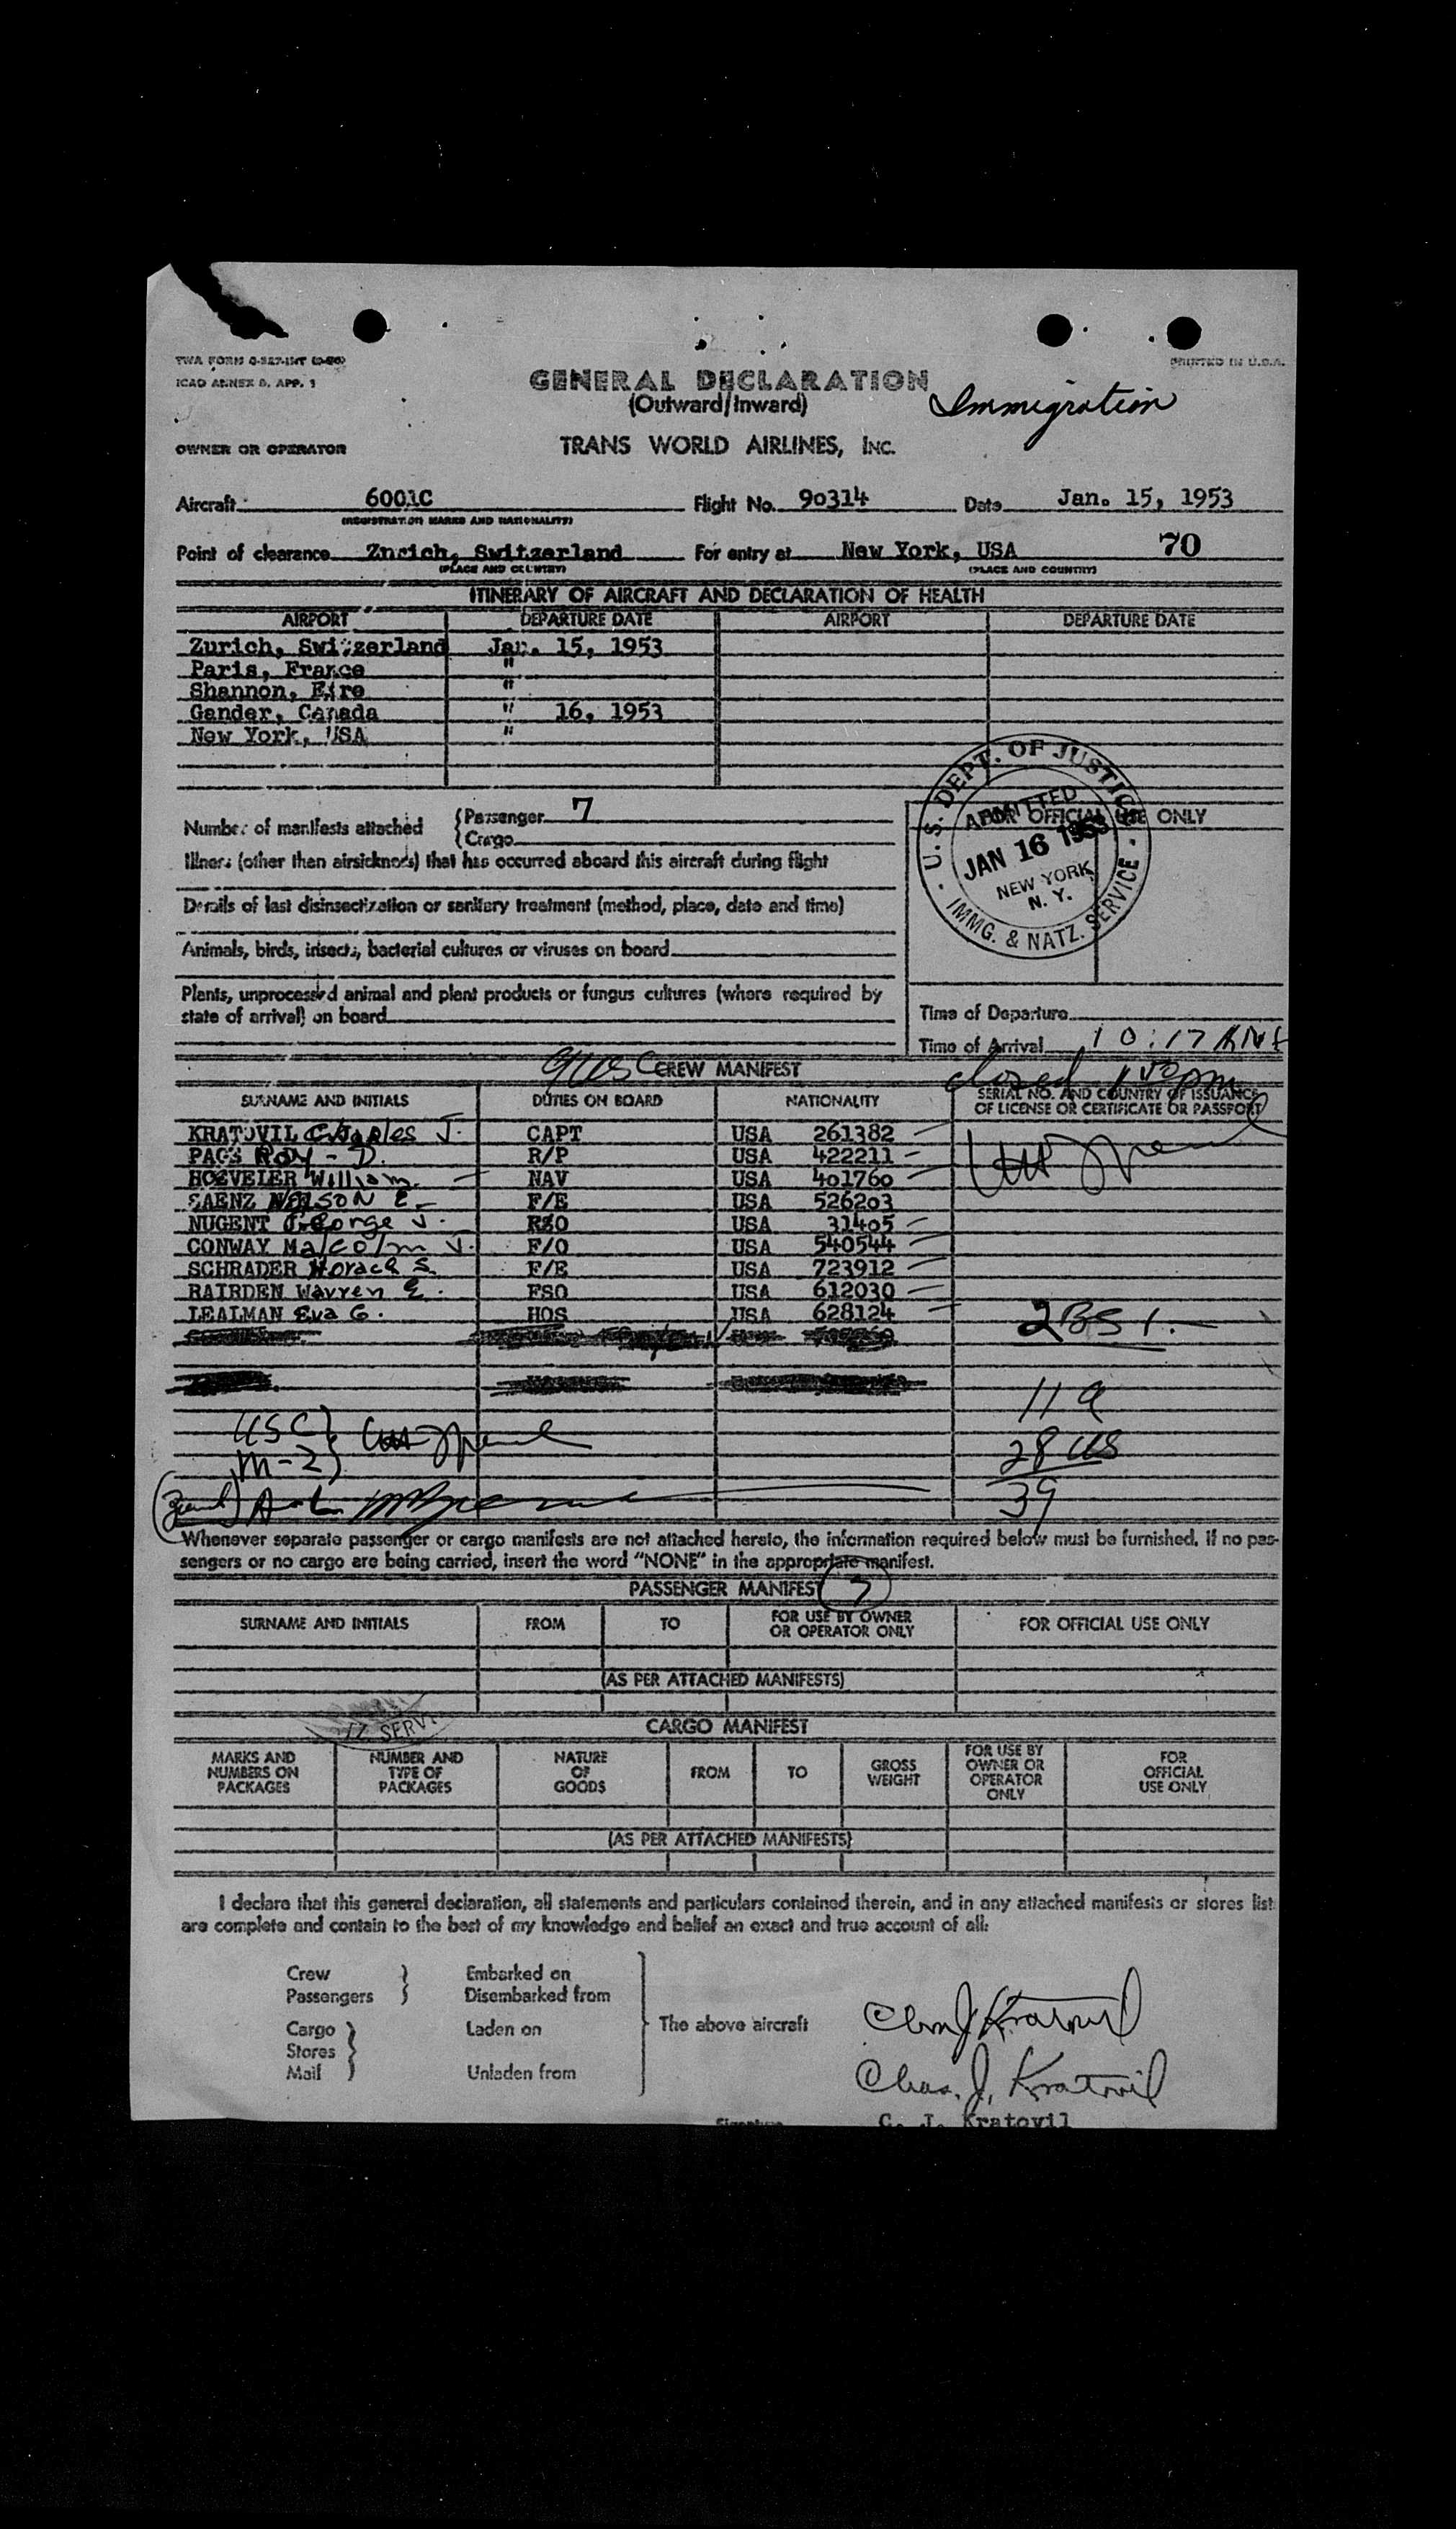 TWA FORM
PRINTED IN U.S.A.
ICAO ANNEX 9, APP. 1
GENERAL DECLARATION
(Outward/Inward)
Immigration
OWNER OR OPERATOR
TRANS WORLD AIRLINES, INC.
Aircraft 6001C Flight No. 90314 Date Jan. 15, 1953
(REGISTRATION MARKS AND NATIONALITY)
Point of clearance Znrich, Switzerland For entry at New York, USA 70
(PLACE AND COUNTRY) (PLACE AND COUNTRY)
ITINERARY OF AIRCRAFT AND DECLARATION OF HEALTH
AIRPORT DEPARTURE DATE AIRPORT DEPARTURE DATE
Zurich, Switzerland Jan. 15, 1953
Paris, France "
Shannon, Eire "
Gander, Canada " 16, 1953
New York, USA "
U.S. DEPT. OF JUSTICE
ADMITTED
JAN 16 1953
NEW YORK,
N. Y.
IMMG. & NATZ. SERVICE
FOR OFFICIAL USE ONLY
Number of manifests attached {Passenger 7
{Cargo
Illness (other than airsickness) that has occurred aboard this aircraft during flight
Details of last disinsectization or sanitary treatment (method, place, date and time)
Animals, birds, insects, bacterial cultures or viruses on board
Plants, unprocessed animal and plant products or fungus cultures (where required by
state of arrival) on board
Time of Departure
Time of Arrival 10:17
closed
9 US CREW MANIFEST
SURNAME AND INITIALS DUTIES ON BOARD NATIONALITY SERIAL NO. AND COUNTRY OF ISSUANCE
OF LICENSE OR CERTIFICATE OR PASSPORT
KRATOVIL Charles J. CAPT USA 261382
Roy - D. R/P USA 422211
HOEVELER William NAV USA 401760
SAENZ NELSON E F/E USA 526203
NUGENT George J. USA 31405
CONWAY Malcolm J. F/O USA 540544
SCHRADER Horace S. F/E USA 723912
RAIRDEN Warren E. FSO USA 612030
LEALMAN Eva G. HOS USA 628124
11 a
USC)
28 US
M-2)
39
Whenever separate passenger or cargo manifests are not attached hereto, the information required below must be furnished. If no pas-
sengers or no cargo are being carried, insert the word "NONE" in the appropriate manifest.
PASSENGER MANIFEST
SURNAME AND INITIALS FROM TO FOR USE BY OWNER
OR OPERATOR ONLY FOR OFFICIAL USE ONLY
(AS PER ATTACHED MANIFESTS)
TZ. SERV
CARGO MANIFEST
MARKS AND
NUMBERS ON
PACKAGES NUMBER AND
TYPE OF
PACKAGES NATURE
OF
GOODS FROM TO GROSS
WEIGHT FOR USE BY
OWNER OR
OPERATOR
ONLY FOR
OFFICIAL
USE ONLY
(AS PER ATTACHED MANIFESTS)
I declare that this general declaration, all statements and particulars contained therein, and in any attached manifests or stores list
are complete and contain to the best of my knowledge and belief an exact and true account of all:
Crew Embarked on
Passengers Disembarked from
Cargo Laden on The above aircraft Chas J Kratovil
Stores
Mail Unladen from Chas. J. Kratovil
Signature C. J. Kratovil